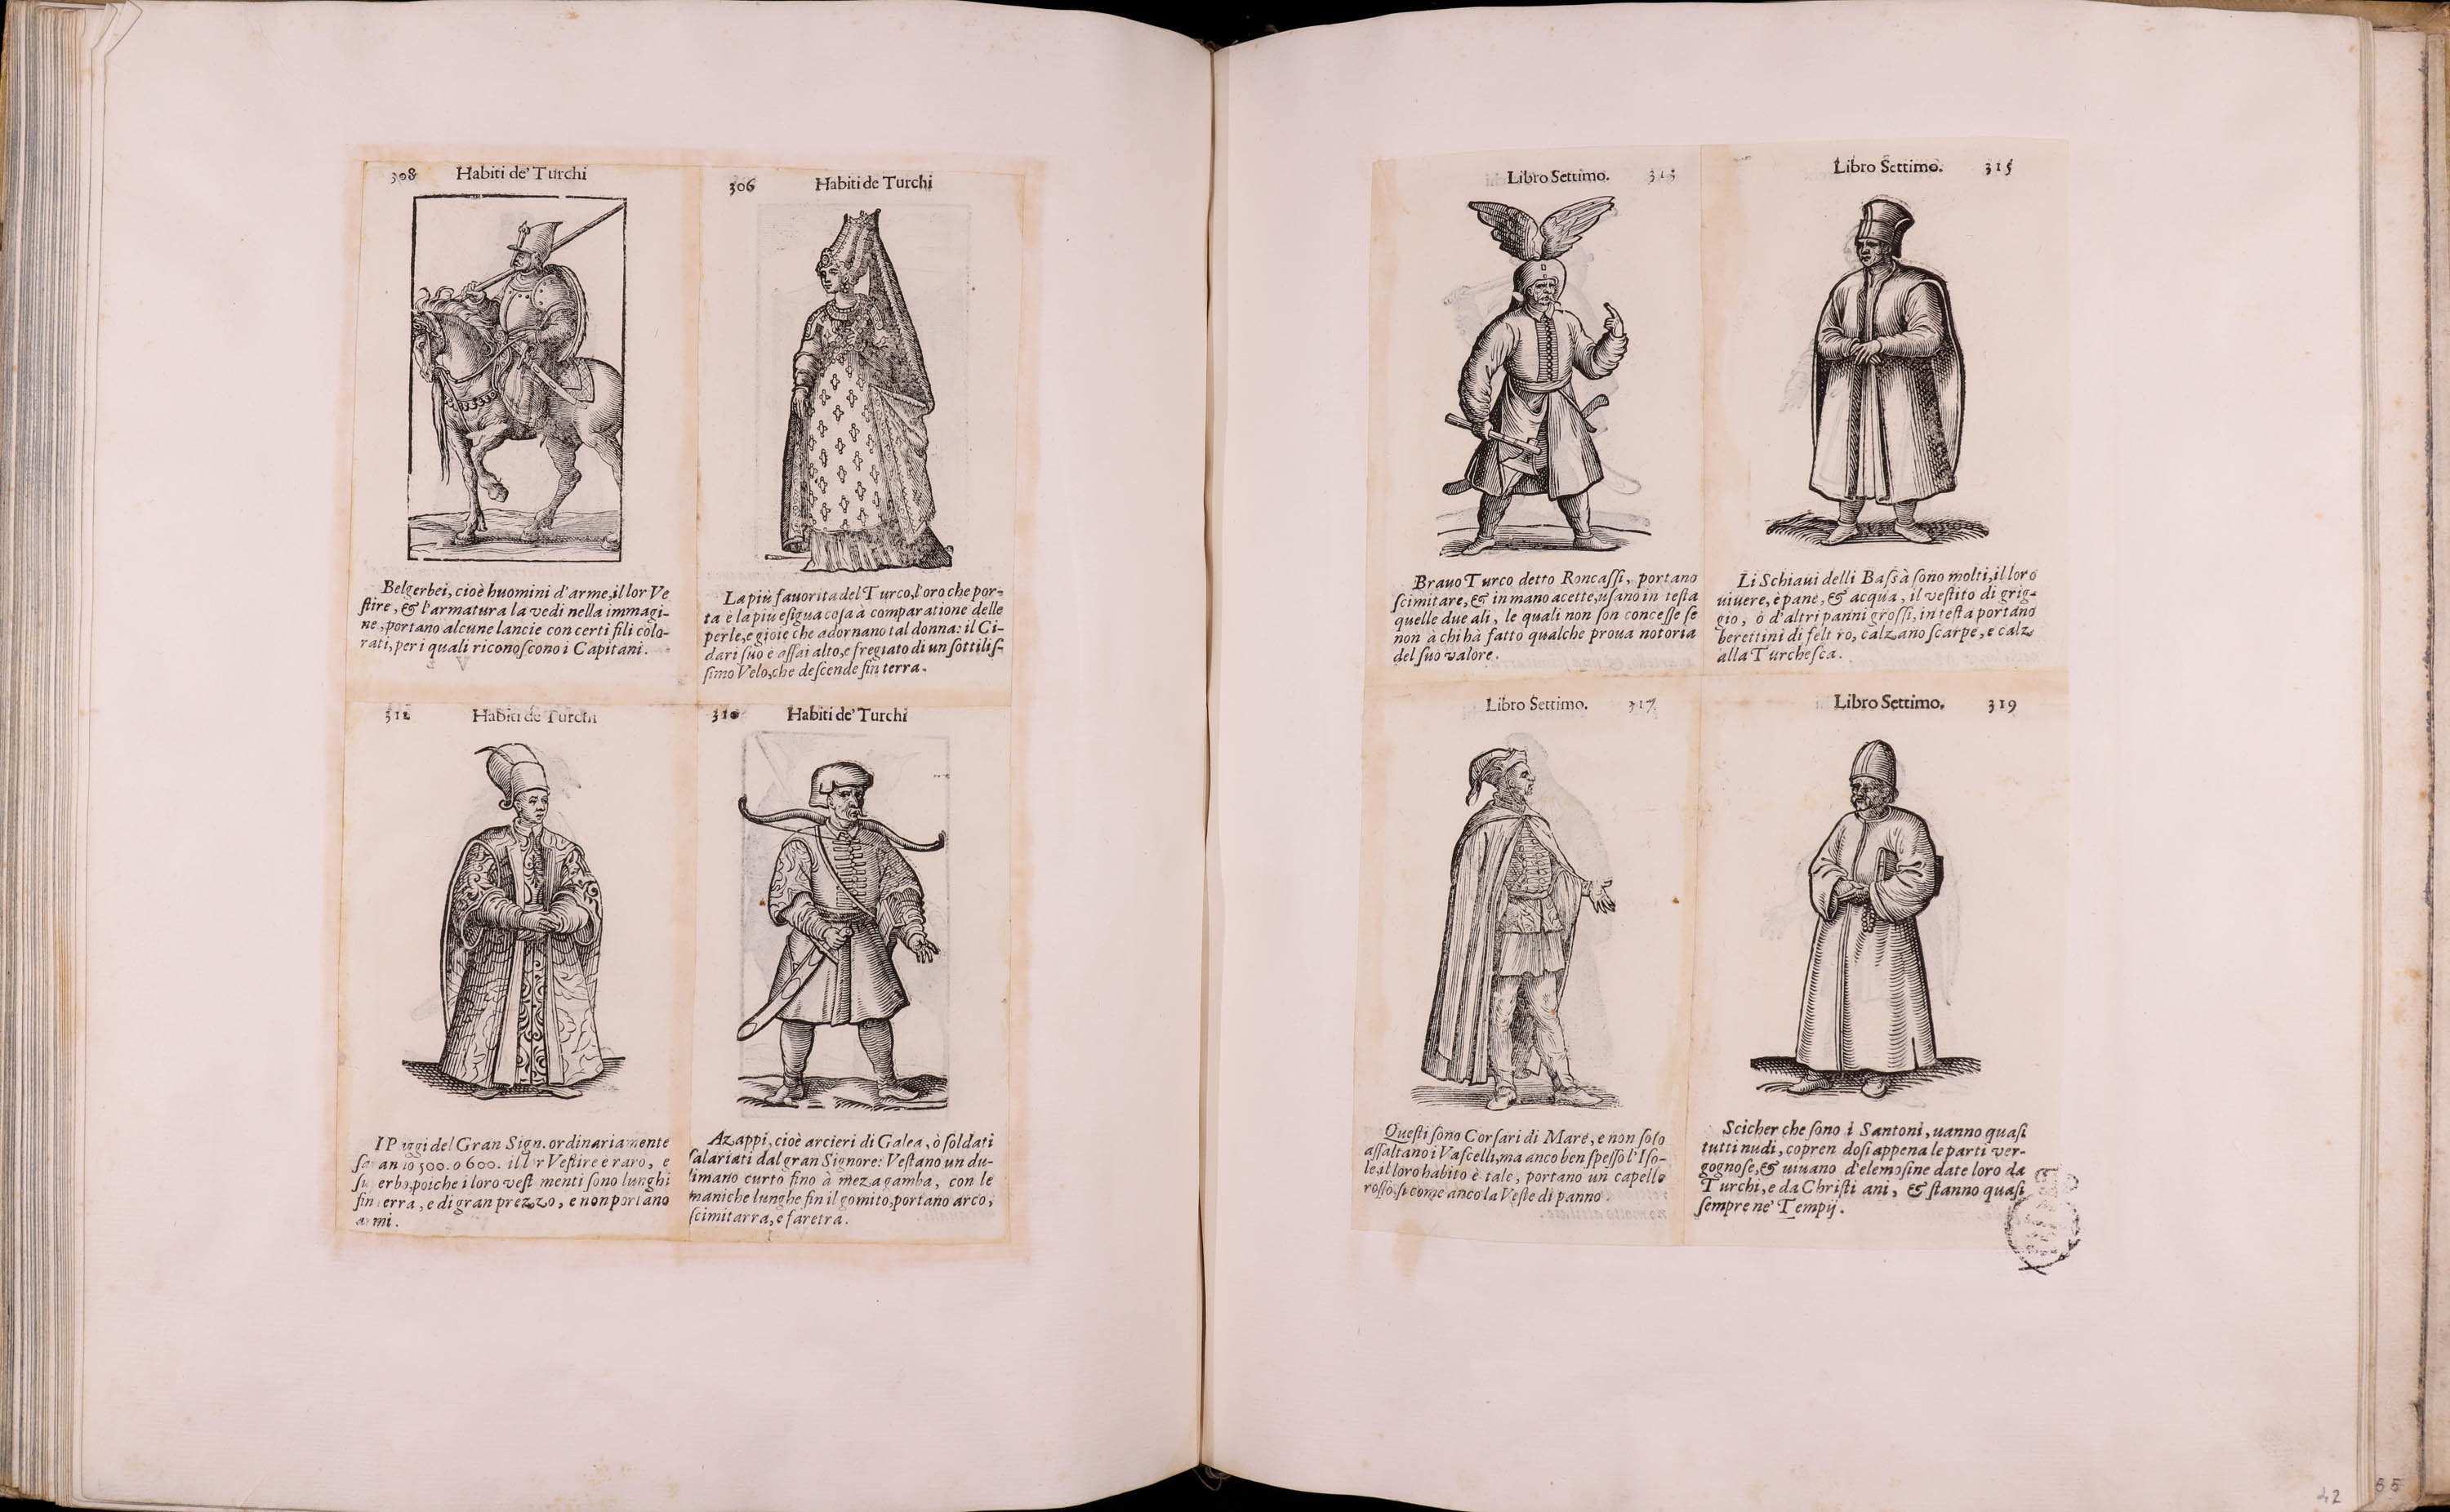 308 Habiti de' Turchi
Belgerbei, cioè huomini d'arme, il lor Ve
ſtire, & l'armatura la vedi nella immagi-
ne, portano alcune lancie con certi fili colo-
rati, per i quali riconoſcono i Capitani.
306 Habiti de Turchi
La più fauorita del Turco, l'oro che por-
ta è la più eſigua coſa à comparatione delle
perle, e gioie che adornano tal donna: il Ci-
dari ſuo è aſſai alto, e fregiato di un ſottiliſ-
ſimo Velo, che deſcende fin terra.
312 Habiti de Turchi
I Paggi del Gran Sign. ordinariamente
500. o 600. Veſtire è raro, e
poiche i loro veſt menti ſono lunghi
e di gran prezzo, e non portano
310 Habiti de' Turchi
Azappi, cioè arcieri di Galea, ò ſoldati
ſalariati dal gran Signore: Veſtano un du-
limano curto fino à meza gamba, con le
maniche lunghe fin il gomito, portano arco,
ſcimitarra, e faretra.
Libro Settimo. 313
Brauo Turco detto Roncaſſi, portano
ſcimitare, & in mano acette, uſano in teſta
quelle due ali, le quali non ſon conceſſe ſe
non à chi hà fatto qualche proua notoria
del ſuo valore.
Libro Settimo. 315
Li Schiaui delli Baſsà ſono molti, il loro
uiuere, è pane, & acqua, il veſtito di grig-
gio, ò d'altri panni groſſi, in teſta portano
berettini di felt ro, calzano ſcarpe, e calz
alla Turcheſca.
Libro Settimo. 317
Queſti ſono Corſari di Mare, e non ſolo
aſſaltano i Vaſcelli, ma anco ben ſpeſſo l'Iſo-
le, il loro habito è tale, portano un capello
roſſo, ſi come anco la Veſte di panno.
Libro Settimo. 319
Scicher che ſono i Santoni, uanno quaſi
tutti nudi, copren doſi appena le parti ver-
gognoſe, & uiuano d'elemoſine date loro da
Turchi, e da Chriſti ani, & ſtanno quaſi
ſempre ne' Tempij.
42